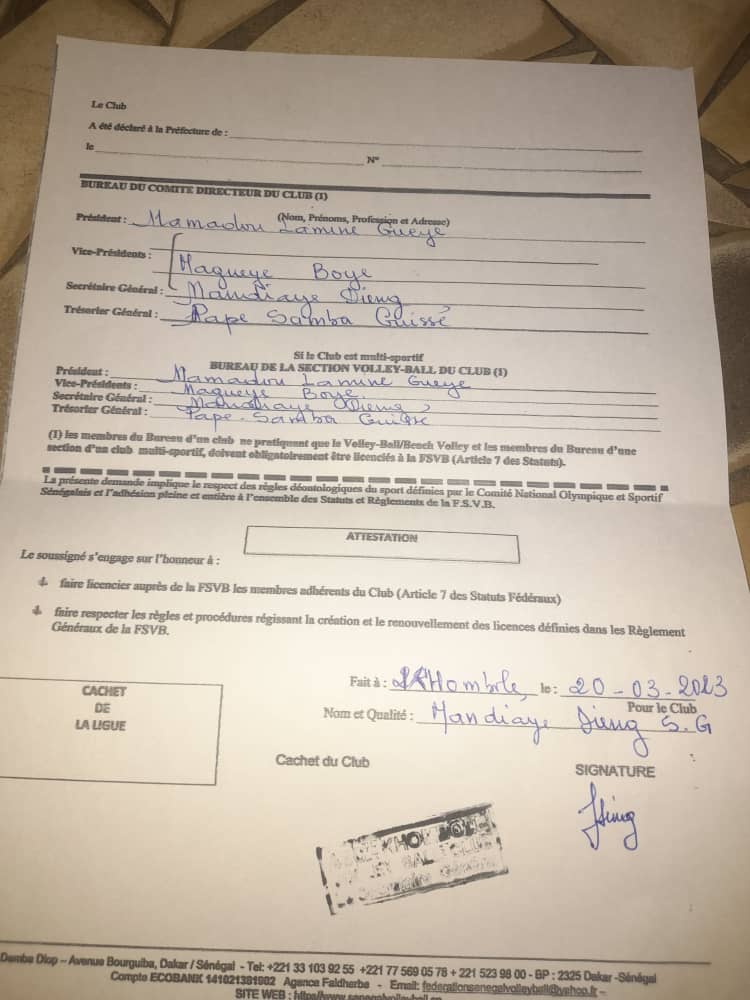 Le Club
A été déclaré à la Préfecture de :
le N°
BUREAU DU COMITE DIRECTEUR DU CLUB (1)
(Nom, Prénoms, Profession et Adresse)
Président : Mamadou Lamine Gueye
Vice-Présidents :
Magueye Boye
Secrétaire Général : Mandiaye Dieng
Trésorier Général : Pape Samba Guissé
Si le Club est multi-sportif
BUREAU DE LA SECTION VOLLEY-BALL DU CLUB (1)
Président : Mamadou Lamine Gueye
Vice-Présidents : Magueye Boye
Secrétaire Général : Mandiaye Dieng
Trésorier Général : Pape Samba Guissé
(1) les membres du Bureau d'un club ne pratiquant que le Volley-Ball/Beach Volley et les membres du Bureau d'une
section d'un club multi-sportif, doivent obligatoirement être licenciés à la FSVB (Article 7 des Statuts).
La présente demande implique le respect des règles déontologiques du sport définies par le Comité National Olympique et Sportif
Sénégalais et l'adhésion pleine et entière à l'ensemble des Statuts et Règlements de la F.S.V.B.
ATTESTATION
Le soussigné s'engage sur l'honneur à :
faire licencier auprès de la FSVB les membres adhérents du Club (Article 7 des Statuts Fédéraux)
faire respecter les règles et procédures régissant la création et le renouvellement des licences définies dans les Règlement
Généraux de la FSVB.
CACHET
DE
LA LIGUE
Fait à : le : 20-03-2023
Pour le Club
Nom et Qualité : Mandiaye Dieng S.G
Cachet du Club
SIGNATURE
Demba Diop – Avenue Bourguiba, Dakar / Sénégal - Tel: +221 33 103 92 55 +221 77 569 05 78 + 221 523 98 00 - BP : 2325 Dakar -Sénégal
Compte ECOBANK 141021381902 Agence Faidherbe - Email: federationsenegalvolleyball@yahoo.fr –
SITE WEB :